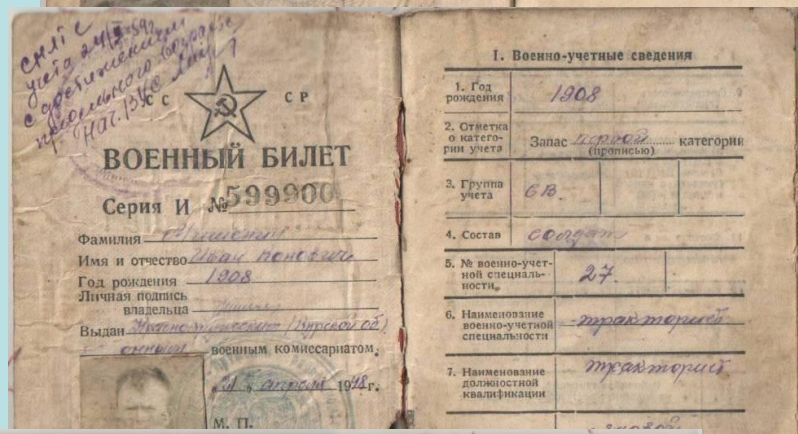 СНЯТ С
учета 24/X-59г.
с достижением
предельного возраста
Нач. 1 ЭКО
СС СР
ВОЕННЫЙ БИЛЕТ
Серия И № 599900
Фамилия
Имя и отчество Иван
Год рождения 1908
Личная подпись
владельца
Выдан (Курской об)
военным комиссариатом.
21 „ апреля 1948г.
М. П.
I. Военно-учетные сведения
1. Год
рождения 1908
2. Отметка
о катего-
рии учета Запас первой категории
(прописью)
3. Группа
учета СВ.
4. Состав солдат
5. № военно-учет-
ной специаль-
ности, 27.
6. Наименование
военно-учетной
специальности тракторист
7. Наименование
должностной
квалификации тракторист.